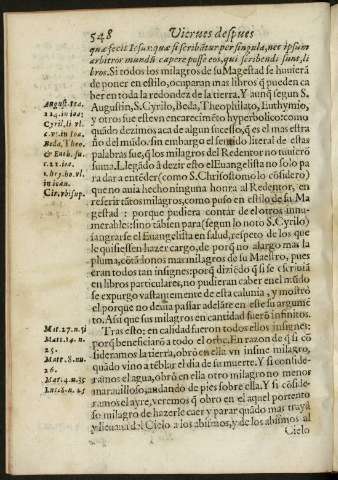 548 Viernes despues
quæ fecit Iesus: quæ si scribãtur per singula, nec ipsum
arbitror mundũ capere posse eos, qui scribendi sunt, li
bros. Si todos los milagros de su Magestad se huvierã
de poner en estilo, ocuparan mas libros, q̃ pueden ca
ber en toda la redondez de la tierra. Y aunq̃ segun S.
August. Ioa.
Augustin, S. Cyrilo, Beda, Theophilato, Euthymio,
y otros fue este vn encarecimiẽto hyperbolico: como
quãdo dezimos aca de algun sucesso, q̃ es el mas estra
ño del mũdo. sin embargo el sentido literal de estas
Beda, Theo.
palabras fue, q̃ los milagros del Redentor no tuviẽrõ
suma. Llegãdo â dezir esto el Euangelista no solo pa
ra dar a entẽder (como S. Chrisostomo lo cõsidero)
que no auia hecho ninguna honra al Redentor, en
in ioan.
referir tãtos milagros, como puso en estilo de su Ma
gestad: porque pudiera contar de el otros innu-
merable: sino tãbien para (segun lo noto S. Cyrilo)
sangrarse el Euangelista en salud, respeto de los que
le quisiessen hazer cargo, de porq̃ no alargo mas la
pluma, cõtãdonos mas milagros de su Maestro, pues
eran todos tan insignes: porq̃ diziẽdo q̃ si se escriuia
en libros particulares, no pudieran caber en el mũdo
se expurgo vastantemente de esta calunia, y mostrô
el porque no devia passar adelãte en este su argumẽ
to. Assi que sus milagros en cantidad fuerõ infinitos.
Tras esto; en calidad fueron todos ellos insignes:
porq̃ beneficiarõ a todo el orbe. En razon de q̃ si cõ
sideramos la tierra, obrô en ella vn insine milagro,
quãdo vino a tẽblar el dia de su muerte. Y si conside-
ramos el agua, obrô en ella otro milagro no menos
marauilloso, andando de pies sobre ella. Y si cõside-
ramos el ayre, veremos q̃ obro en el aquel portento
so milagro de hazerle caer y parar quãdo mas traya
y lleuaua del Cielo a los abismos, y de los abismos al
Cielo